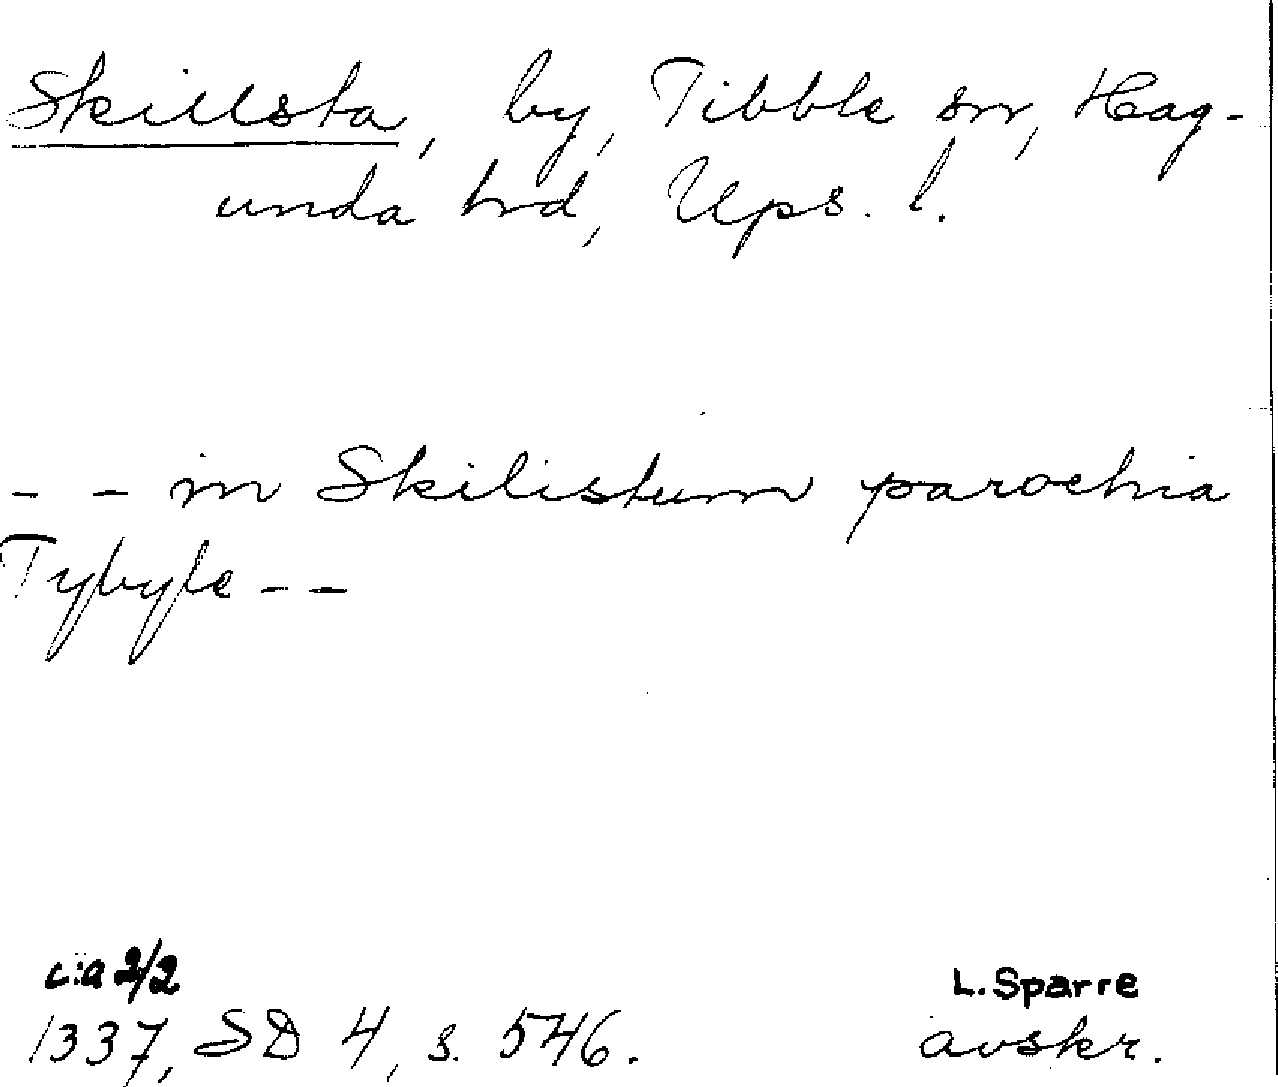 Skillsta, by, Tibble sn, Hag-
unda hrd, Ups. l.
- - in Skilistum parochia
Tybyle - -
c:a 2/2
L. Sparre
1337, SD 4, s. 546.
avskr.